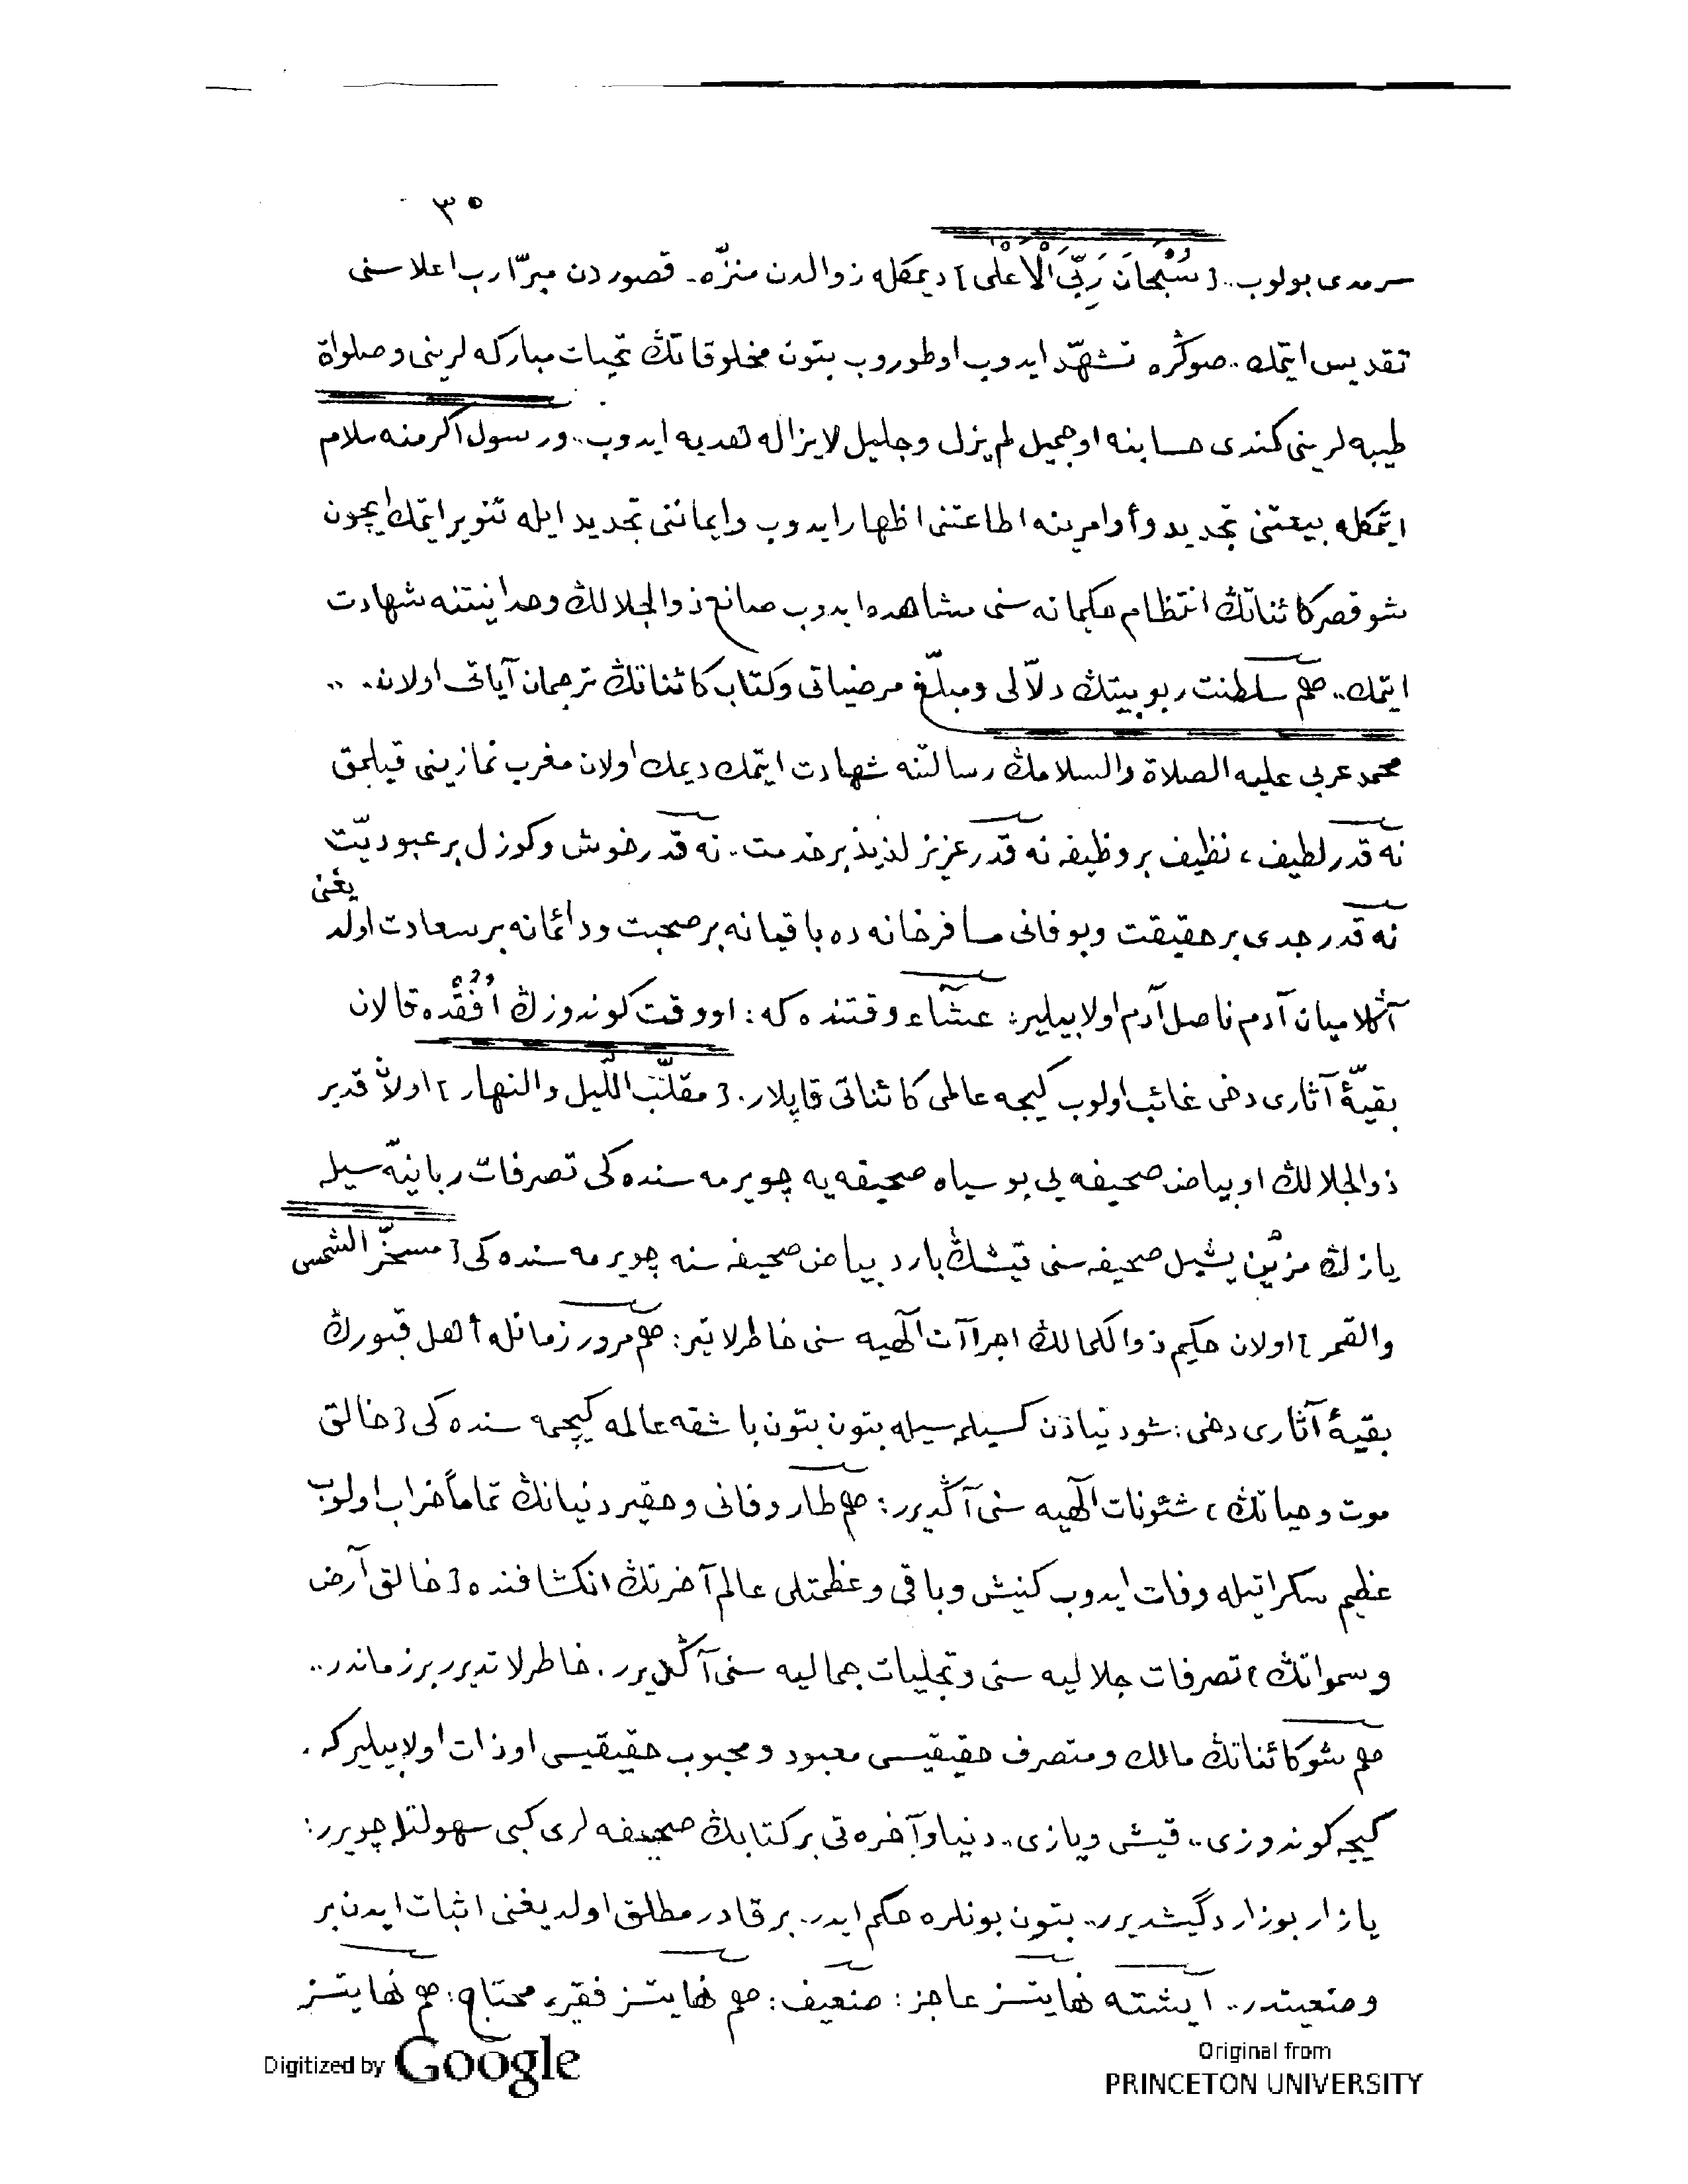 ٣٥
سرمدى بولوب.. [سُبْحَانَ رَبِّىَ الْاَعْلٰى] ديمكله زوالدن منزّه. قصوردن مبرّا رب اعلاسنى
تقديس ايتمك.. صوڭره تشهّد ايدوب اوطوروب بتون مخلوقاتڭ تحيات مباركه لرينى وصلواة
طيبه لرينى كندى حسابنه او جميل لم يزل وجليل لايزاله هديه ايدوب.. ورسول اكرمنه سلام
ايتمكله بيعتنى تجديد و أوامرينه اطاعتنى اظهار ايدوب وايماننى تجديد ايله تنوير ايتمك ايچون
شو قصر كائناتڭ انتظام حكيمانه سنى مشاهده ايدوب صانع ذوالجلالڭ وحدانيتنه شهادت
ايتمك.. هم سلطنت ربوبيتڭ دلّالى ومبلّغ مرضياتى وكتاب كائناتڭ ترجمان آياتى اولان. ..
محمد عربى عليه الصلاة والسلامڭ رسالتنه شهادت ايتمك ديمك اولان مغرب نمازينى قيلمق
نه قدر لطيف، نظيف بر وظيفه نه قدر عزيز لذيذ بر خدمت. نه قدر خوش وكوزل بر عبوديّت
نه قدر جدى بر حقيقت وبو فانى مسافرخانه ده باقيانه بر صحبت ودائمانه بر سعادت اولديغنى
آڭلاميان آدم ناصل آدم اولابيلير: عشاء وقتنده كه: او وقت كوندوزڭ اُفُقْده قالان
بقيّۀ آثارى دخى غائب اولوب كيجه عالمى كائناتى قاپلار. [مقلّب الليل والنهار] اولان قدير
ذوالجلالڭ او بياض صحيفه يى بو سياه صحيفه يه چويرمه سنده كى تصرفات ربانيّه سيله
يازڭ مزيّن يشيل صحيفه سنى قيشڭ بارد بياض صحيفه سنه چويرمه سنده كى [مسخّر الشمس
والقمر] اولان حكيم ذوالكمالڭ اجراآت الٰهيه سنى خاطرلاتير: هم مرور زمانله أهل قبورڭ
بقيۀ آثارى دخى: شو دنيادن كسيلمه سيله بتون بتون باشقه عالمه كيچمه سنده كى [خالق
موت وحياتڭ] شئونات الٰهيه سنى آڭديرر: هم طار وفانى وحقير دنيانڭ تماماً خراب اولوب
عظيم سكراتيله وفات ايدوب كنيش وباقى وعظمتلى عالم آخرتڭ انكشافنده [خالق أرض
وسمواتڭ] تصرفات جلاليه سنى وتجليات جماليه سنى آڭديرر. خاطرلاتديرر بر زماندر..
هم شو كائناتڭ مالك ومتصرف حقيقيسى معبود ومحبوب حقيقيسى او ذات اولابيليركه.
كيجه كوندوزى.. قيش ويازى.. دنيا وآخره تى بر كتابڭ صحيفه لرى كبى سهولتله چويرر:
يازار بوزار دگيشديرر.. بتون بونلره حكم ايدر. بر قادر مطلق اولديغنى اثبات ايدن بر
وضعيتدر.. ايشته نهايتسز عاجز: ضعيف: هم نهايتسز فقير، محتاج: هم نهايتسز
Digitized by Google
Original from
PRINCETON UNIVERSITY